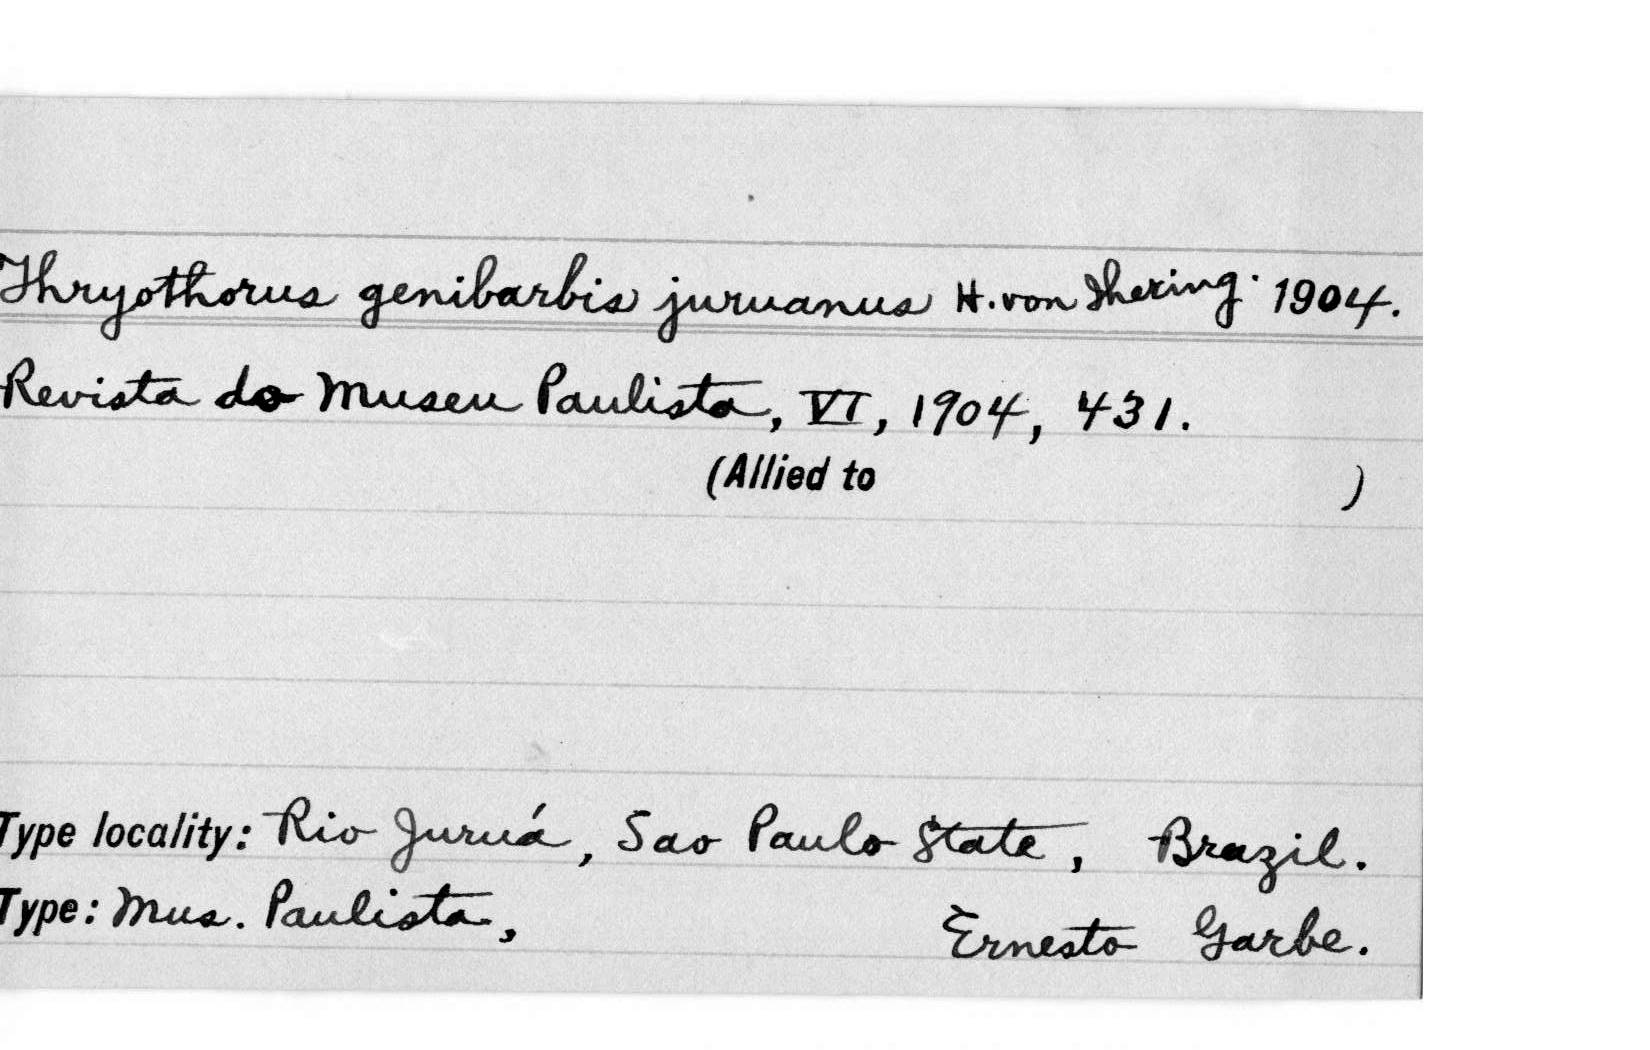 Thryothorus genibarbis juruanus H. von Ihering. 1904.
Revista do Museu Paulista, VI, 1904, 431.
(Allied to )
Type locality: Rio Juruá, Sao Paulo State, Brazil.
Type: Mus. Paulista, Ernesto Garbe.